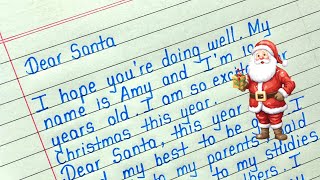 Dear Santa
I hope you're doing well. My
name is Amy and I'm
years old. I am so
Christmas this year.
Dear Santa, this year I
my best to be
to my parents
to my studies
I